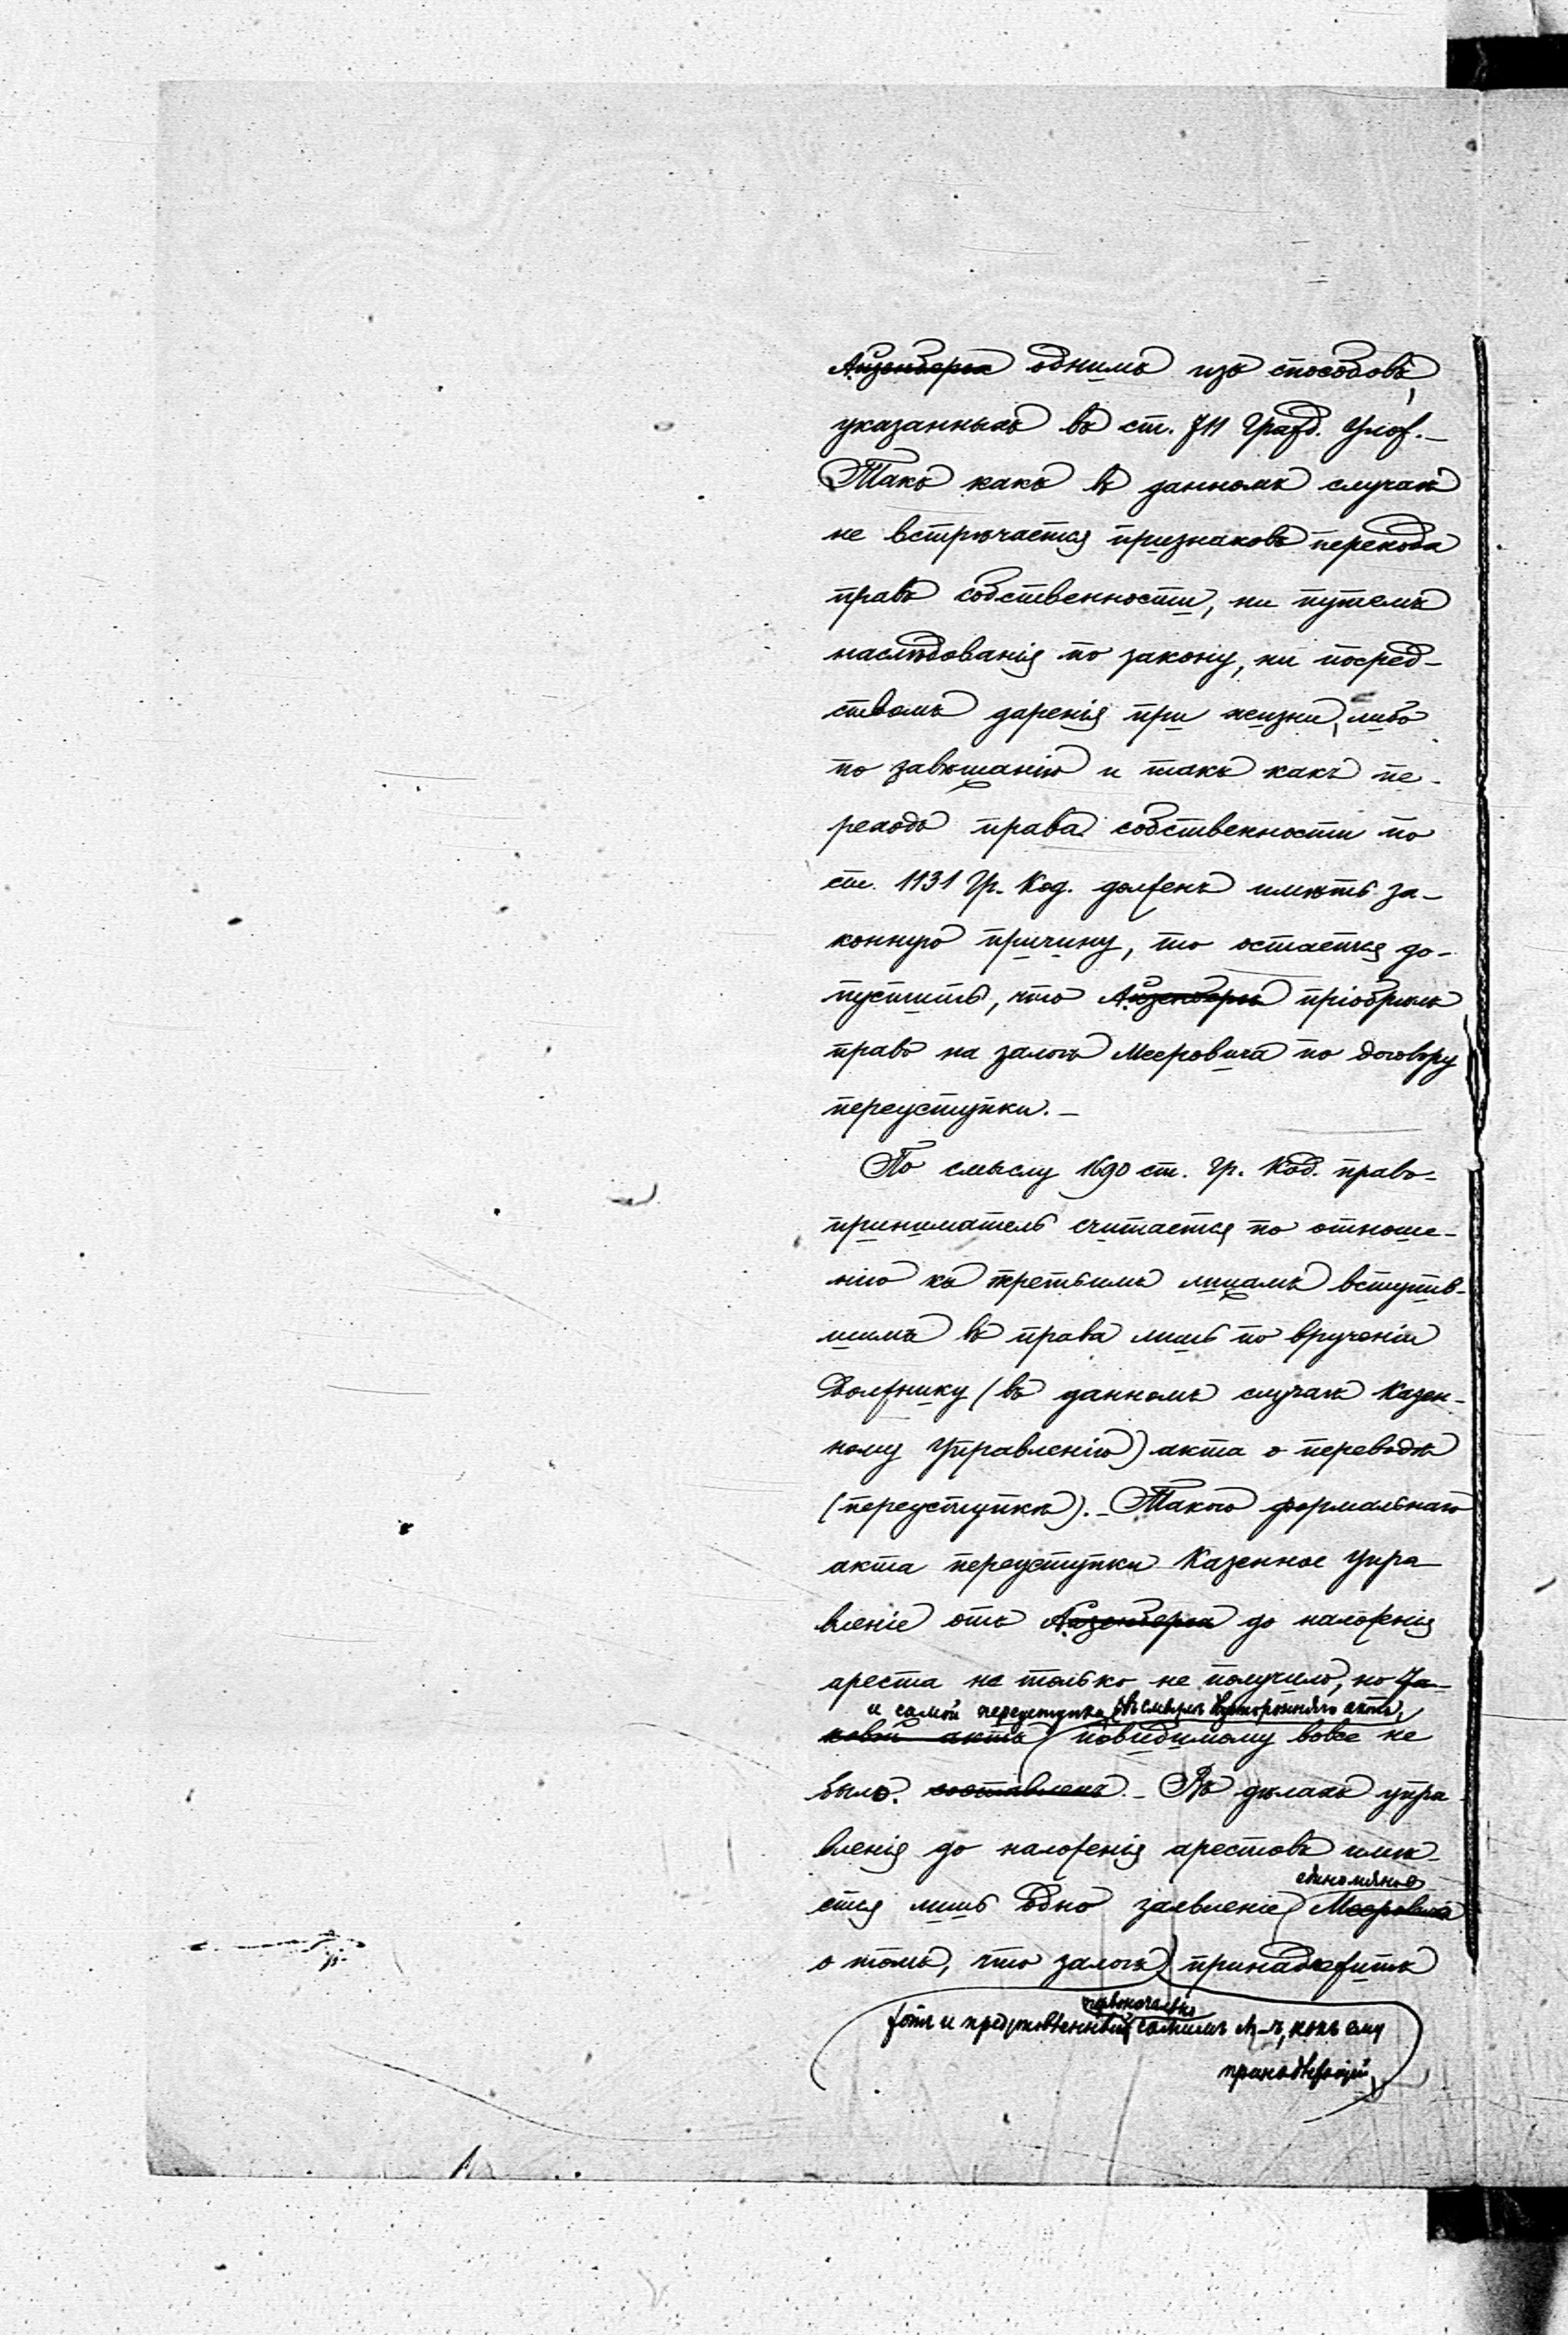 Айзенберга однимъ изъ способовъ,
указанныхъ въ ст. 711 Гражд. Улож.–
Такъ какъ въ данномъ случаѣ
не встрѣчается признаковъ перехода
правъ собственности, ни путемъ
наслѣдованія по закону, ни посред-
ствомъ даренія при жизни, либо
по завѣщанію и такъ какъ пе-
реходъ права собственности по
ст. 1131 Гр. Код. долженъ имѣть за-
конную причину, то остается до-
пустить, что Айзенбергъ пріобрѣлъ
право на залогъ Мееровича по договору
переуступки.–
По смыслу 1690 ст. Гр. Код. право-
приниматель считается по отноше-
нію къ третьимъ лицамъ вступив-
шимъ въ права лишь по врученіи
Должнику (въ данномъ случаѣ Казен-
ному Управленію) акта о переводѣ
(переуступкѣ).– Такого формальнаго
акта переуступки Казенное Упра-
вленіе отъ Айзенберга до наложенія
ареста не только не получило, но та-
и самой переуступки въ смыслѣ двухсторонняго акта,
ковой актъ повидимому вовсе не
было. составленъ.– Въ дѣлахъ упра-
вленія до наложенія арестовъ имѣ-
ется лишь одно заявленіе Мееровича
о томъ, что залогъ принадлежитъ
хотя и представленный первоначально самимъ М–ъ, какъ ему
принадлежащій,